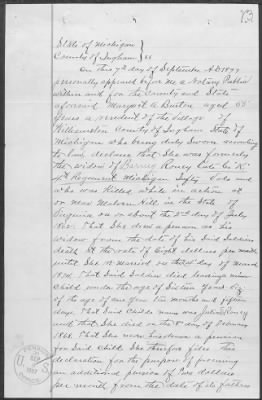 73
State of Michigan
County of Ingham } ss
On this 7th day of September A.D. 1897
personally appeared before me a Notary Public
within and for the County and State
aforesaid Margaret A. Burton aged 65
years a resident of the Village of
Williamston County of Ingham State of
Michigan who being duly sworn according
to law, declares that She was formerly
the widow of Co. "K"
4th Regiment Michigan Infty Vols and
who was killed while in action at
or near Malvern Hill in the State of
Virginia on or about the day of July
1862. That She drew a pension as his
widow from the date of his said Soldiers
death at the rate of Eight dollars per month
until She married on the day of March
That Said Soldier died leaving one
Child under the age of Sixteen years
of the age of one year ten months and fifteen
days. That Said Childs name was
and that She died on the 8th day of
That She never a pension
for Said Child She therefore files this
declaration for the purpose of procuring
an additional pension of two dollars
per month from the date of its fathers
U S
SEP
1897